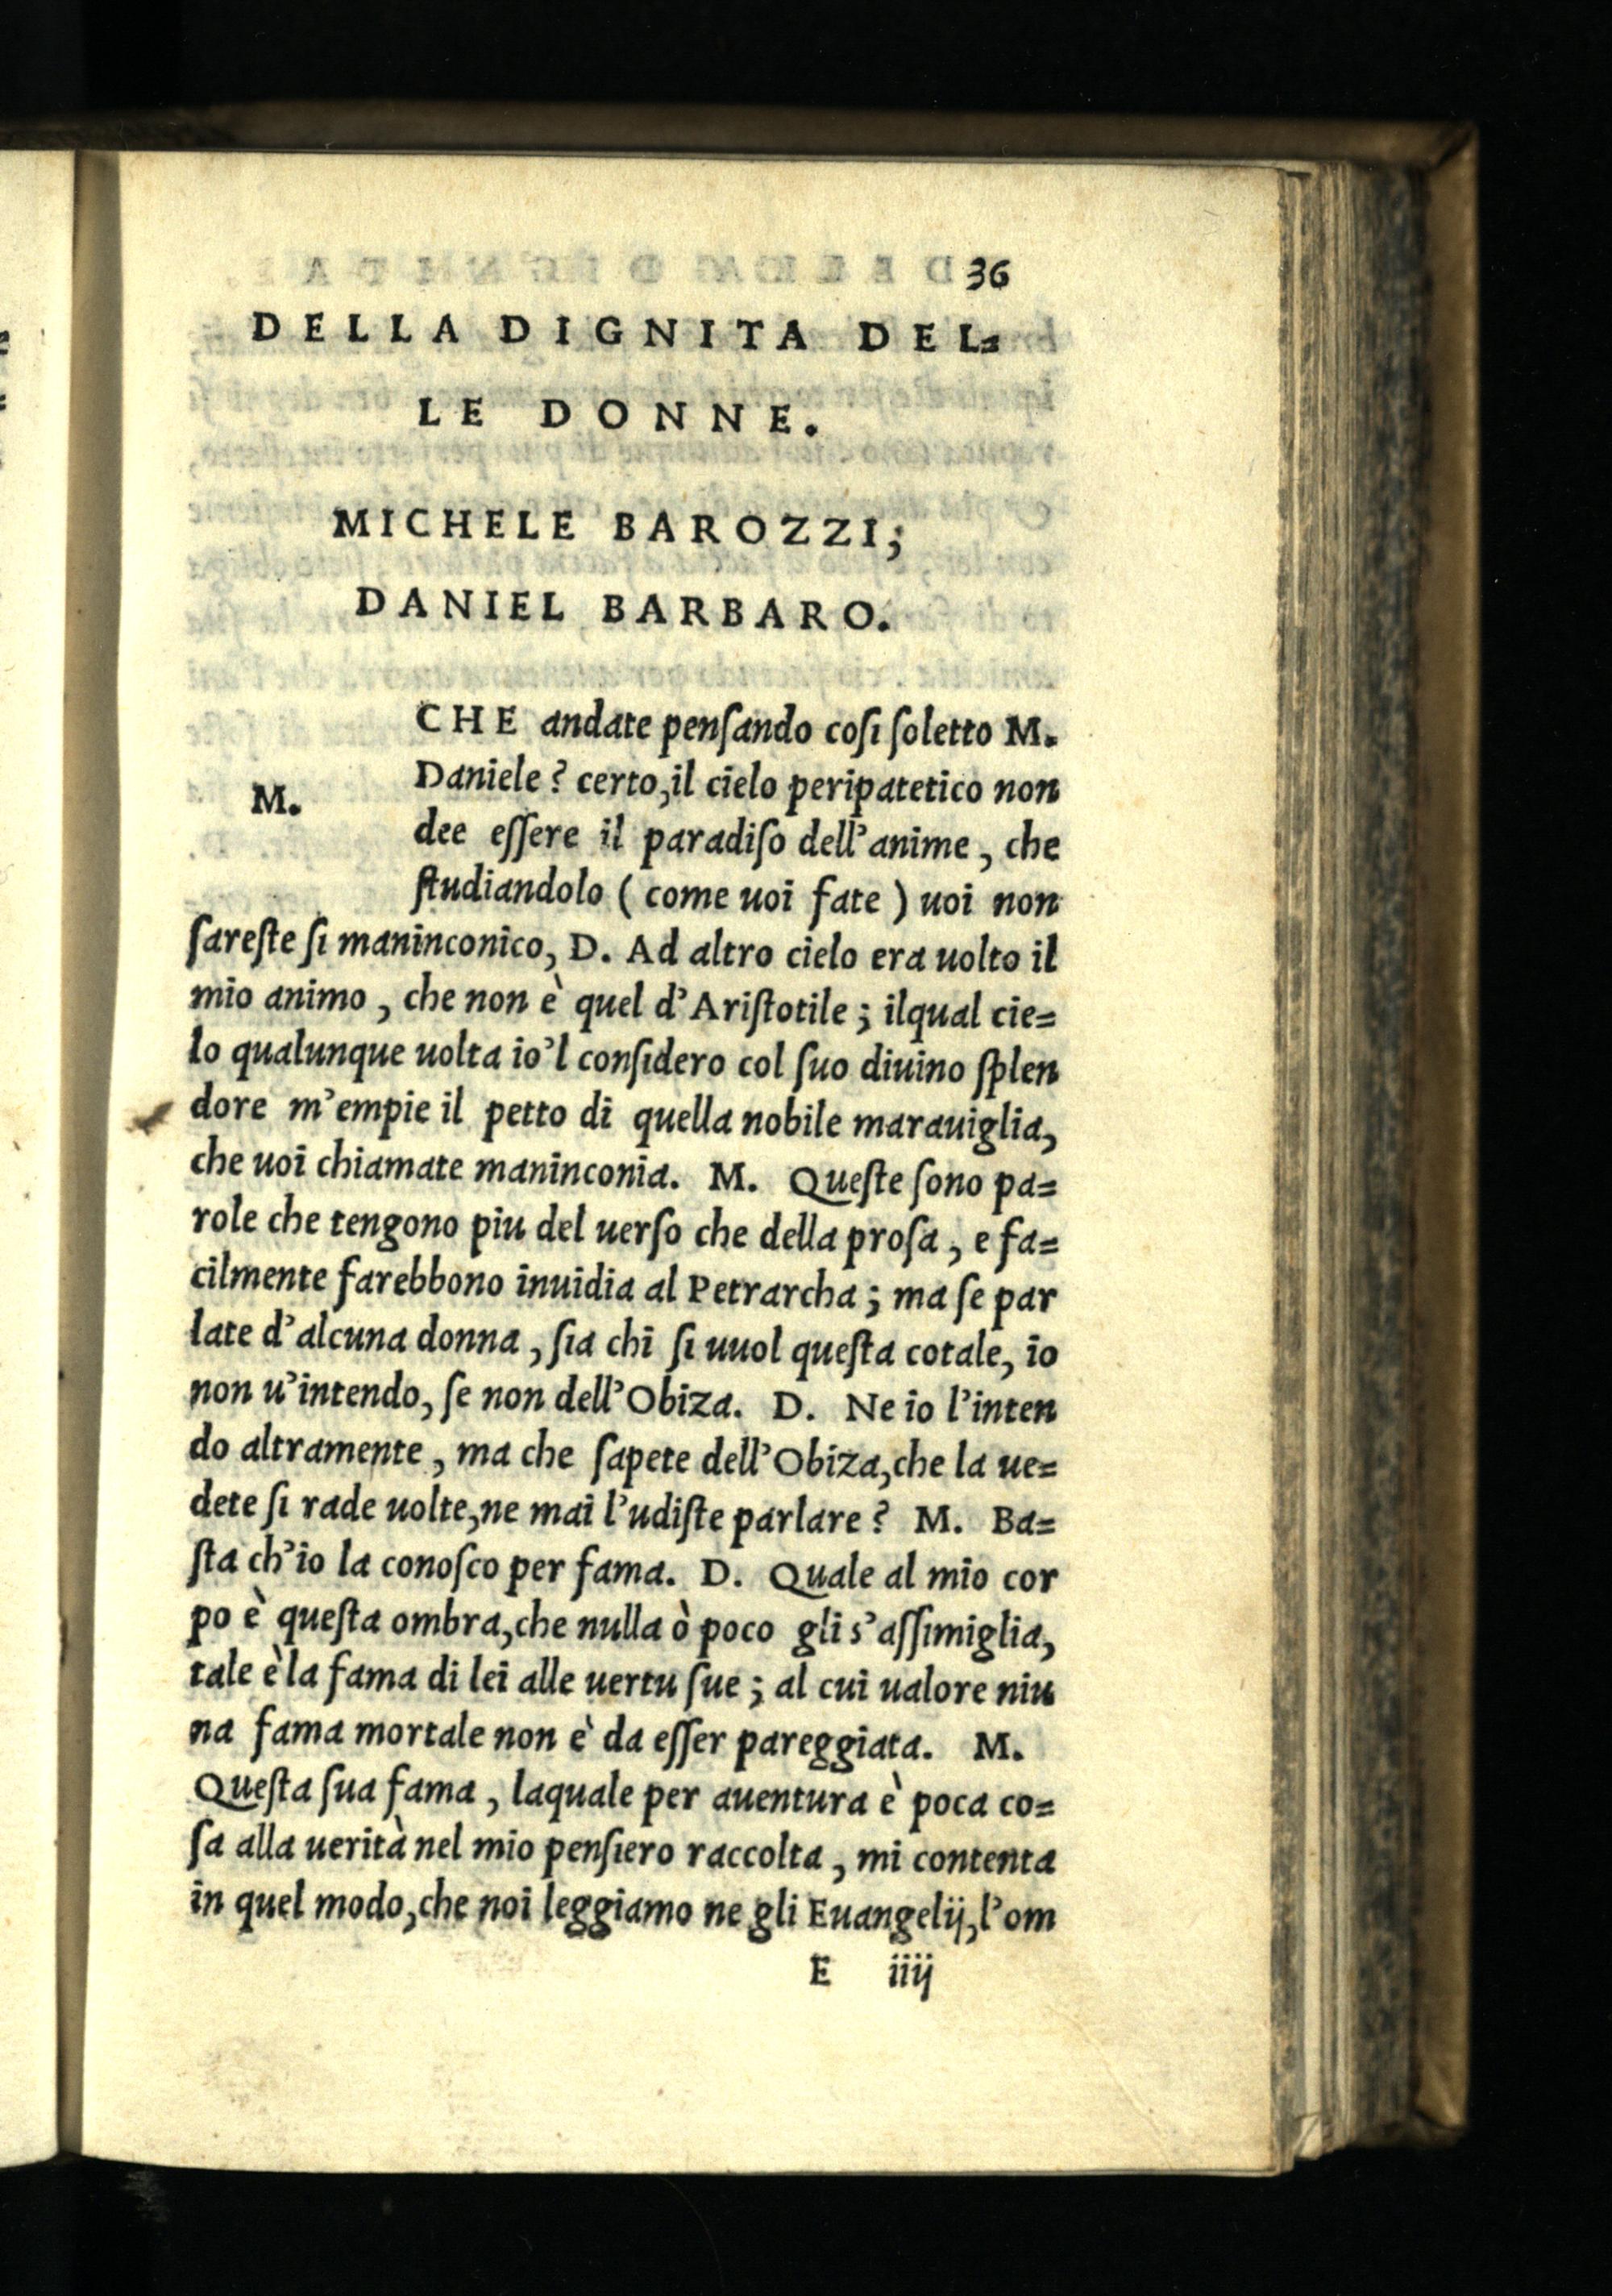 36
DELLA DIGNITA DEL=
LE DONNE.
MICHELE BAROZZI;
DANIEL BARBARO.
CHE andate penſando coſi ſoletto M.
M.
Daniele? certo, il cielo peripatetico non
dee eſſere il paradiſo dell'anime, che
ſtudiandolo (come uoi fate) uoi non
ſareſte ſi maninconico, D. Ad altro cielo era uolto il
mio animo, che non è quel d'Ariſtotile; ilqual cie=
lo qualunque uolta io'l conſidero col ſuo diuino ſplen
dore m'empie il petto di quella nobile marauiglia,
che uoi chiamate maninconia. M. Queſte ſono pa=
role che tengono piu del uerſo che della proſa, e fa=
cilmente farebbono inuidia al Petrarcha; ma ſe par
late d'alcuna donna, ſia chi ſi uuol queſta cotale, io
non u'intendo, ſe non dell'Obiza. D. Ne io l'inten
do altramente, ma che ſapete dell'Obiza, che la ue=
dete ſi rade uolte, ne mai l'udiſte parlare? M. Ba=
ſta ch'io la conoſco per fama. D. Quale al mio cor
po è queſta ombra, che nulla ò poco gli s'aſſimiglia,
tale è la fama di lei alle uertu ſue; al cui ualore niu
na fama mortale non è da eſſer pareggiata. M.
Queſta ſua fama, laquale per auentura è poca co=
ſa alla uerità nel mio penſiero raccolta, mi contenta
in quel modo, che noi leggiamo ne gli Euangelij, l'om
E iiij